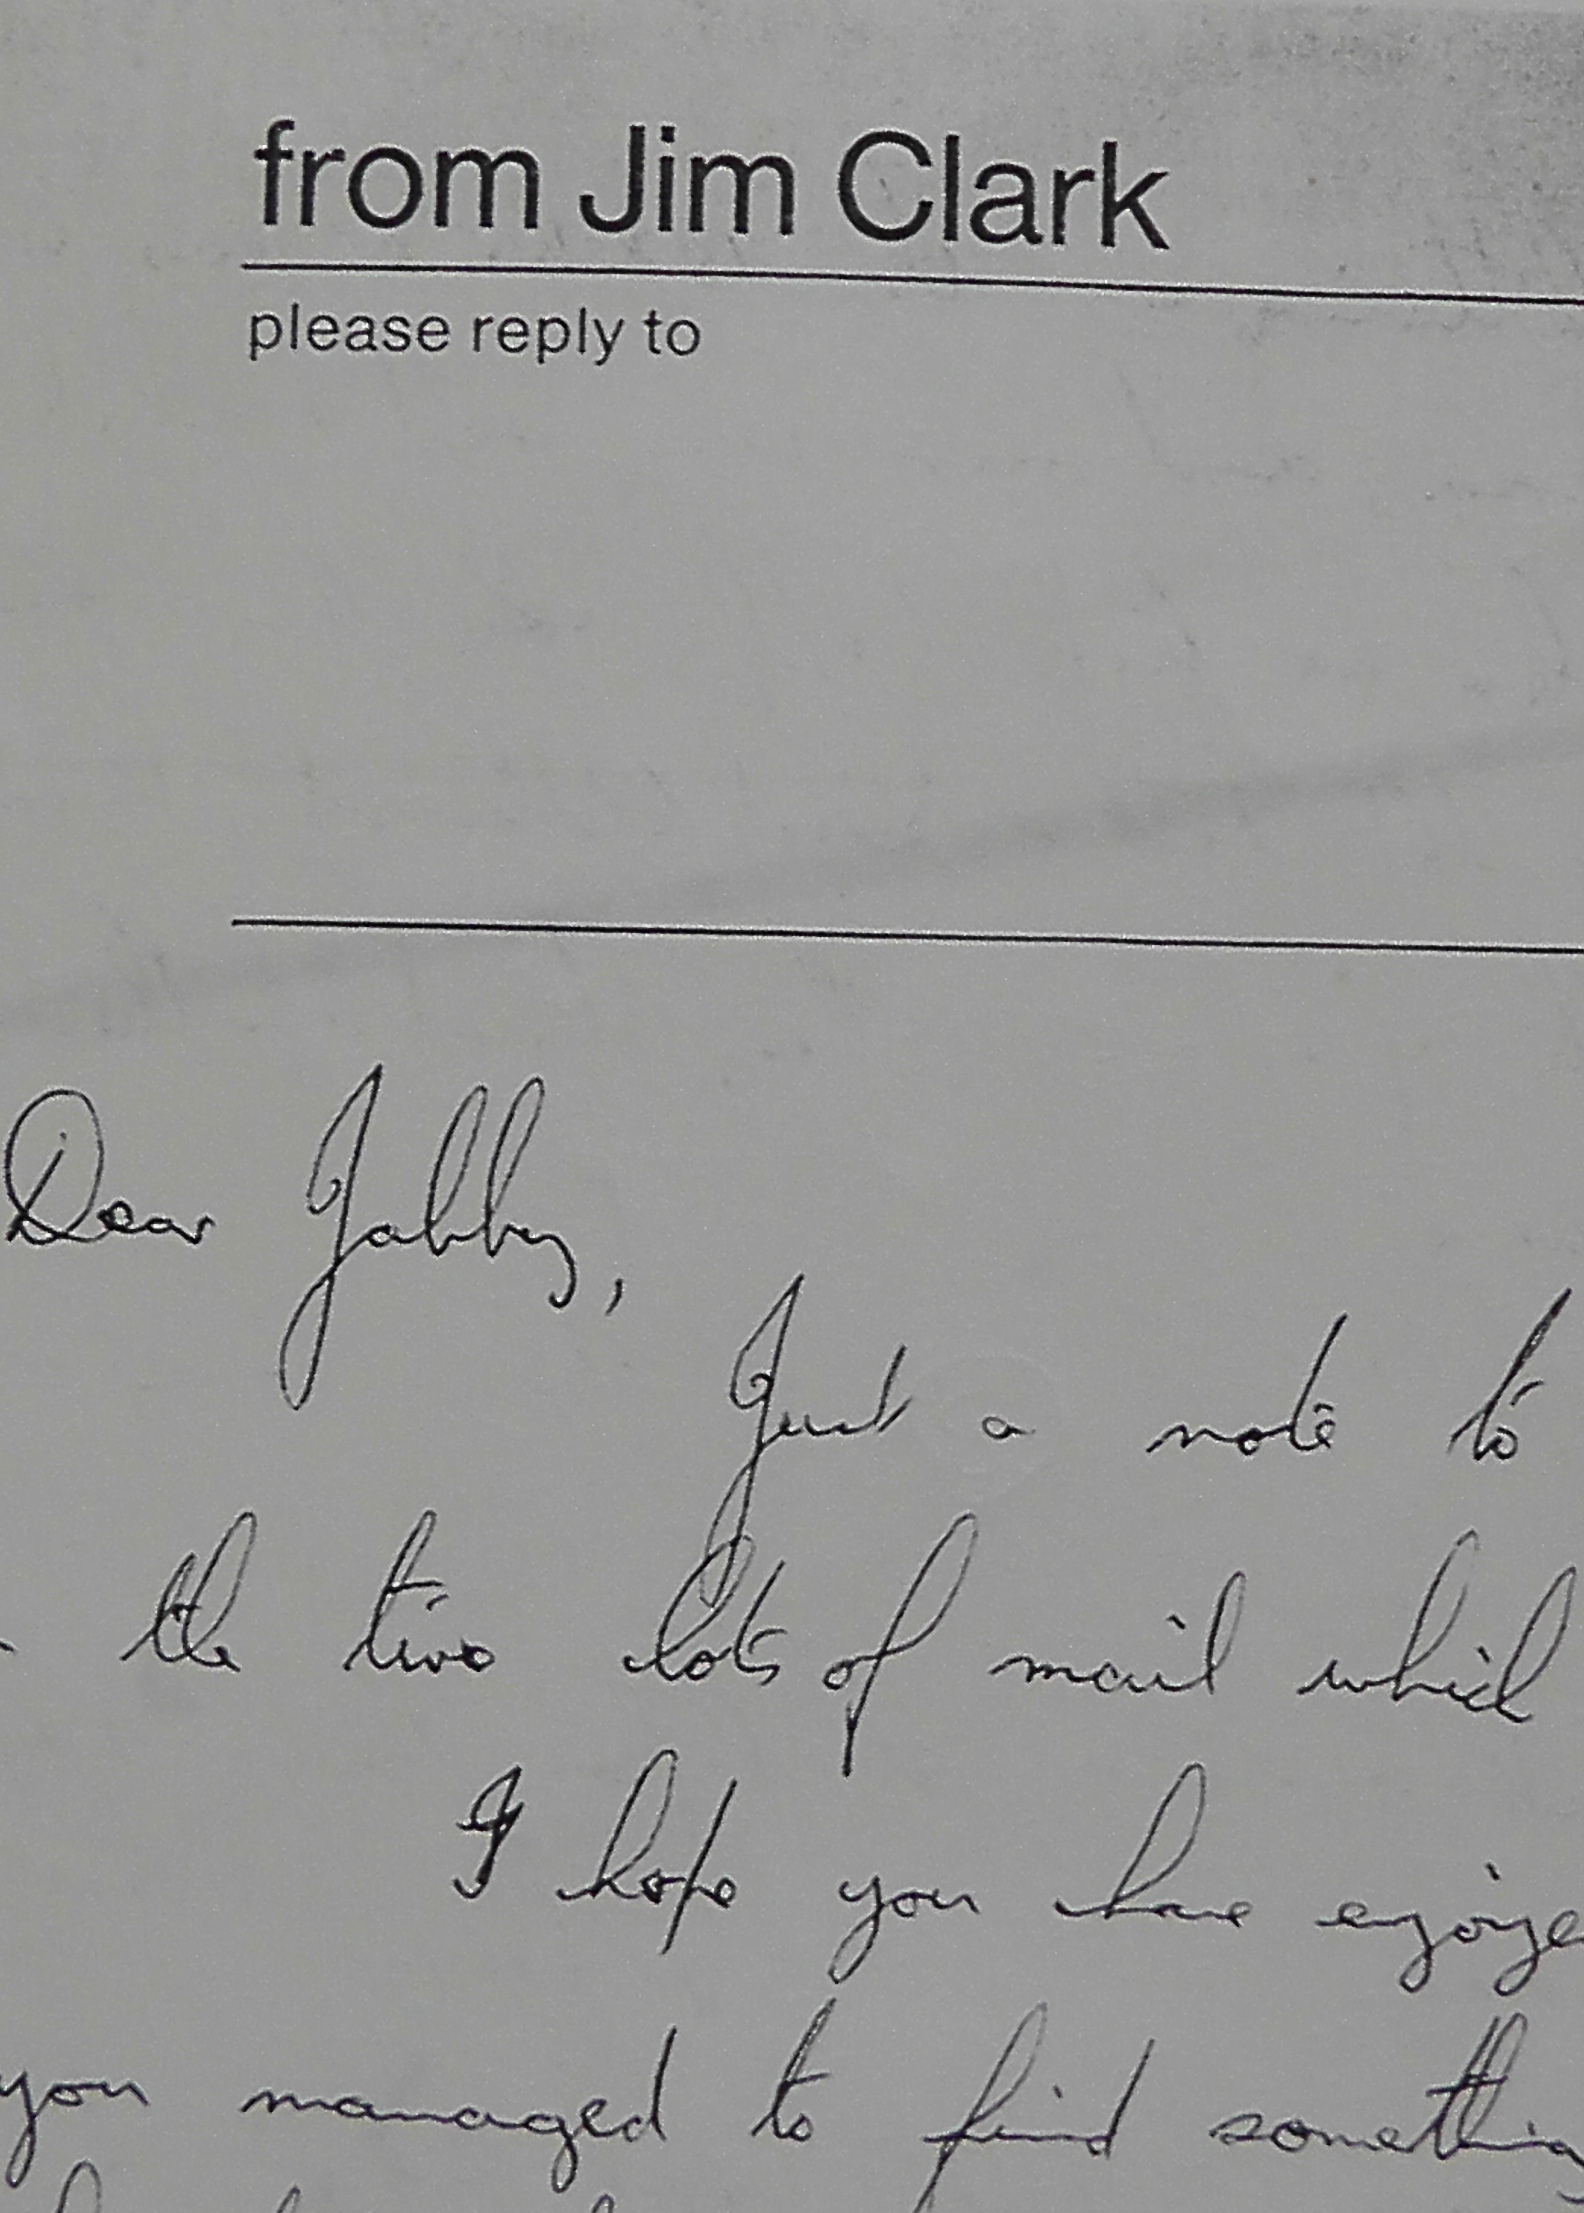 from Jim Clark
please reply to
Dear Jabby,
Just a note to
the two lots of mail which
I hope you have enjoye
you managed to find something